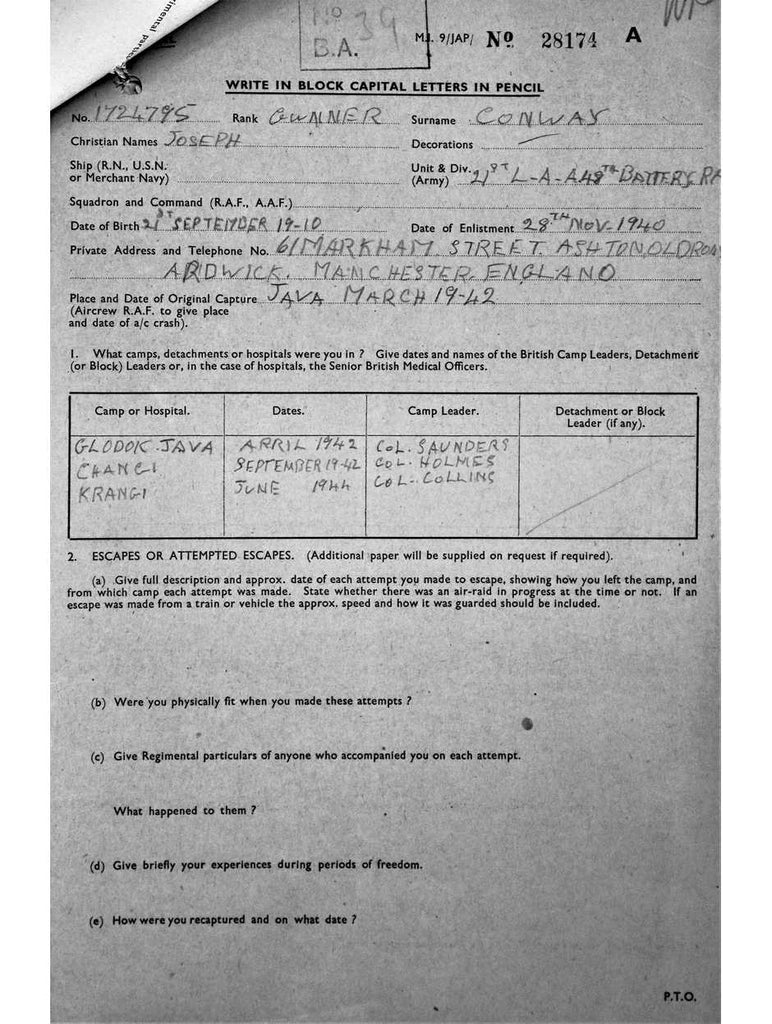 39
B.A.
M.I. 9/JAP/ No 28174 A
WRITE IN BLOCK CAPITAL LETTERS IN PENCIL
No. 1724795 Rank GUNNER Surname CONWAY
Christian Names JOSEPH Decorations
Ship (R.N., U.S.N. or Merchant Navy)
Unit & Div. (Army) 21ST L-A-A 48TH BATTERY RA
Squadron and Command (R.A.F., A.A.F.)
Date of Birth 21ST SEPTEMBER 19-10 Date of Enlistment 28TH NOV-1940
Private Address and Telephone No. 61 MARKHAM STREET ASHTON OLD ROA
ARDWICK. MANCHESTER. ENGLAND
Place and Date of Original Capture JAVA MARCH 19-42
(Aircrew R.A.F. to give place
and date of a/c crash).
1. What camps, detachments or hospitals were you in ? Give dates and names of the British Camp Leaders, Detachment
(or Block) Leaders or, in the case of hospitals, the Senior British Medical Officers.
Camp or Hospital. Dates. Camp Leader. Detachment or Block Leader (if any).
GLODOK JAVA APRIL 1942 COL. SAUNDERS
CHANGI SEPTEMBER 19-42 COL. HOLMES
KRANGI JUNE 1944 COL. COLLINS
2. ESCAPES OR ATTEMPTED ESCAPES. (Additional paper will be supplied on request if required).
(a) Give full description and approx. date of each attempt you made to escape, showing how you left the camp, and
from which camp each attempt was made. State whether there was an air-raid in progress at the time or not. If an
escape was made from a train or vehicle the approx. speed and how it was guarded should be included.
(b) Were you physically fit when you made these attempts ?
(c) Give Regimental particulars of anyone who accompanied you on each attempt.
What happened to them ?
(d) Give briefly your experiences during periods of freedom.
(e) How were you recaptured and on what date ?
P.T.O.